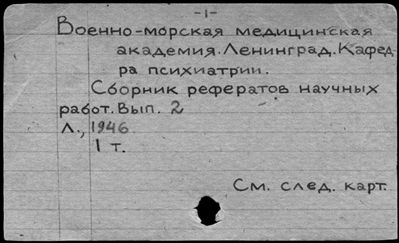 -1-
Военно-морская медицинская
академия. Ленинград. Кафед-
ра психиатрии.
Сборник рефератов научных
работ. Вып. 2
Л., 1946
1 т.
См. след. карт.